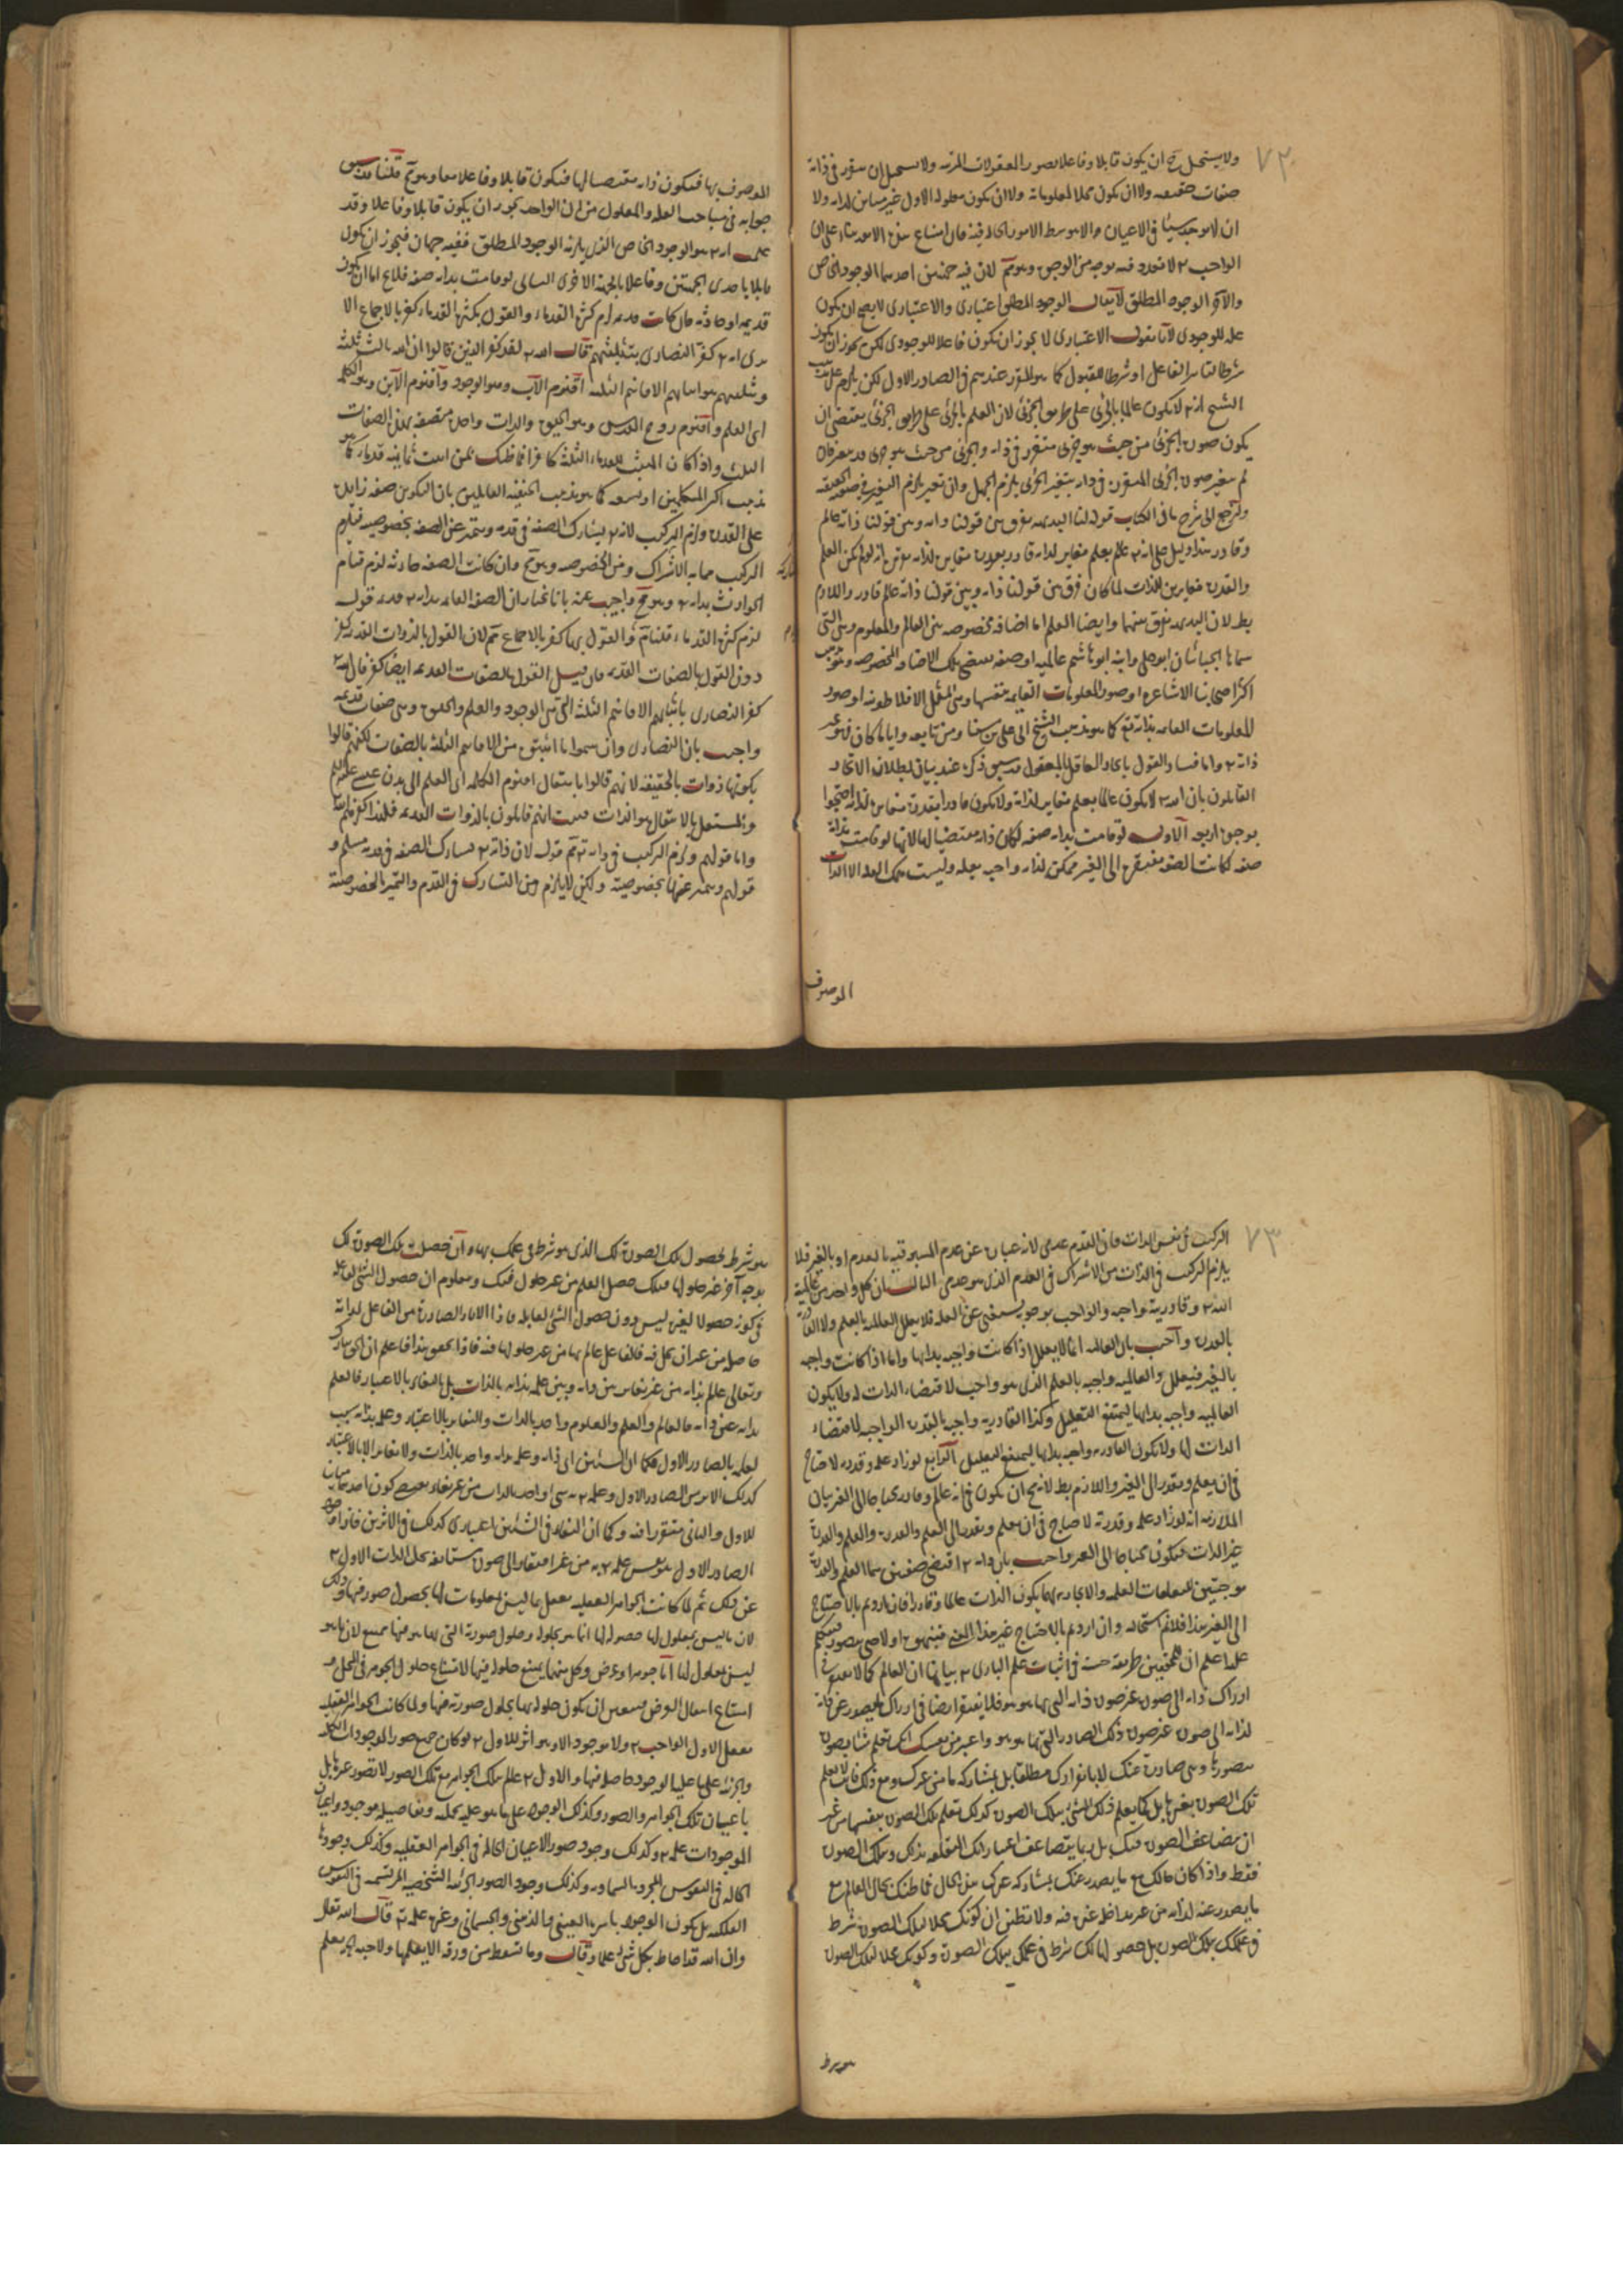 ٧٢
ولا يستحيل ان يكون قابلا وفاعلا لصور المعقولات ولا ان في ذاته
صفات حقيقية ولا ان يكون محلا لمعلولاته ولا ان يكون معلوله الاول غير مباين لذاته ولا
ان لا يوجد شيئا في الاعيان الا بتوسط الامور الحالة فيه فان امتناع هذه الامور بناء على ان
الواجب لا تعدد فيه بوجه من الوجوه وهو مم لان فيه احديهما الوجود الخاص
والآخر الوجود المطلق لا يقال الوجود المطلق اعتبارى والاعتبارى لا يصح ان يكون
علة للوجودى لانا نقول الاعتبارى لا يجوز ان يكون فاعلا للوجودى لكن يجوز ان يكون
شرطا لتاثير الفاعل او شرطا للقبول كما هو المقرر عندهم في الصادر الاول لكن يلزم على
الشيخ انه لا يكون عالما بالجزئى على طريق الجزئى لان العلم بالجزئى على طريق الجزئى يقتضى ان
يكون صورة الجزئى من حيث هو جزئى متقررة في ذاته والجزئى من حيث هو جزئى قد يتغير فان
لم يتغير صورة الجزئى المتقررة في ذاته بتغير الجزئى يلزم الجهل وان تغير يلزم التغير في صفته الحقيقية
ولنرجع الى شرح باقى الكتاب قوله لنا البديهة تفرق بين قولنا ذاته وبين قولنا ذاته عالم
وقادر هذا دليل على انه عالم بعلم مغاير لذاته قادر بقدرة مغايرة لذاته انه لو لم يكن العلم
والقدرة مغايرين للذات لما كان فرق بين قولنا ذاته وبين قولنا ذاته عالم قادر واللازم
بط لان البديهة تفرق بينهما وايضا العلم اما اضافة مخصوصة بين العالم والمعلوم وهى التى
سماها الجبائيان ابو على وابنه ابو هاشم عالمية او صفة تقتضى تلك الاضافة المخصوصة وهو مذهب
اكثر اصحابنا الاشاعرة او صور المعلومات القايمة بنفسها وهى المثل الافلاطونية او صور
المعلومات القايمة بذاته تع كما هو مذهب الشيخ ابى على بن سينا ومن تابعه واياما كان فهو غير
ذاته واما فساد القول باتحاد العاقل بالمعقول قد سبق ذكره عند بيان بطلان الاتحاد
القائلون بان الله لا يكون عالما بعلم مغاير لذاته ولا يكون قادرا بقدرة مغايرة لذاته احتجوا
بوجوه اربعة الاول لو قامت بذاته صفة لكان ذاته مقتضيا لها لانها لو قامت بذاته
صفة لكانت الصفة مفتقرة الى الغير ممكنة لذاته واجبة بعلة وليست تلك العلة الا الذات
الموصوف
الموصوف بها فيكون ذاته مقتضيا لها فيكون قابلا وفاعلا معا وهو مح قلنا قد سبق
جوابه في مباحث العلة والمعلول من ان الواحد يجوز ان يكون قابلا وفاعلا وقد
علمت انه هو الوجود الخاص الذى يلزمه الوجود المطلق ففيه جهتان فيجوز ان يكون
قابلا باحدى الجهتين وفاعلا بالجهة الاخرى الثانى لو قامت بذاته صفة فلا يخ اما ان يكون
قديمة او حادثة فان كانت قديمة لزم كثرة القدماء والقول بكثرة القدماء كفر بالاجماع الا
ترى انه كفر النصارى بتثليثهم قال الله لقد كفر الذين قالوا ان الله ثالث ثلثة
وتثليثهم هو اثباتهم الاقانيم الثلثة اقنوم الاب وهو الوجود واقنوم الابن وهو الكلمة
اى العلم واقنوم روح القدس وهو الحيوة والذات واحدة متصفة بهذه الصفات
الثلث واذا كان المثبت للقدماء الثلثة كافرا فما ظنك بمن اثبت ثمانية قدماء كما هو
مذهب اكثر المتكلمين او تسعة كما هو مذهب الحنفية القائلين بان التكوين صفة زائدة
على القدرة ولزم التركيب لانه يشارك الصفة في قدمه ويتميز عن الصفة بخصوصيته فيلزم
التركيب مما به الاشتراك ومن الخصوصية وهو مح وان كانت الصفة حادثة لزم قيام
الحوادث بذاته وهو مح واجيب عنه بانا نختار ان الصفة القائمة بذاته قديمة قوله
لزم كثرة القدماء قلنا نم والقول بها كفر بالاجماع نم لان القول بالذوات القديمة كفر
دون القول بالصفات القديمة فان قيل القول بالصفات القديمة ايضا كفر
كفر النصارى باثباتهم الاقانيم الثلثة التى هى الوجود والعلم والحيوة وهى صفات قديمة
واجيب بان النصارى وان سموا ما اثبتوه من الاقانيم الثلثة بالصفات لكنهم قالوا
بكونها ذوات بالحقيقة لانهم قالوا بانتقال اقنوم الكلمة اى العلم الى بدن عيسى عليه السلم
والمستقل بالانتقال هو الذات فثبت انهم قائلون بالذوات القديمة فلهذا كفرهم الله
واما قولهم ولزم التركيب في ذاته تع نم قوله لان ذاته تشارك الصفة في قدمه مسلم و
قولهم ويتميز عنها بخصوصيته ولكن لا يلزم من التشارك في القدم والتميز بالخصوصية
٧٣
التركيب في نفس الذات فان القدم عدمى لانه عبارة عن عدم المسبوقية بالعدم او بالغير فلا
يلزم التركيب في الذات من الاشتراك في القدم الذى هو عدمى الثالث ان كل واحد من عالمية
الله وقادريته واجبة والواجب بوجوبه يستغنى عن العلة فلا يعلل العالمية بالعلم ولا القادرية
بالقدرة واجيب بان العالمية انما لا يعلل اذا كانت واجبة بذاتها واما اذا كانت واجبة
بالغير فيعلل والعالمية واجبة بالعلم الذى هو واجب لاقتضاء الذات له ولا يكون
العالمية واجبة بذاتها ليمتنع التعليل وكذا القادرية واجبة بالقدرة الواجبة لاقتضاء
الذات لها ولا يكون القادرية واجبة بذاتها ليمتنع التعليل الرابع لو زاد علمه وقدرته لاحتاج
في ان يعلم ويقدر الى الغير واللازم بط لانه مح ان يكون في انه عالم وقادر محتاجا الى الغير بيان
الملازمة انه لو زاد علمه وقدرته لاحتاج في ان يعلم ويقدر الى العلم والقدرة والعلم والقدرة
غير الذات فيكون محتاجا الى الغير واجيب بان ذاته اقتضى صفتين هما العلم والقدرة
موجبتين للتعلقات العلمية والايجادية بهما يكون الذات عالما وقادرا فان اردتم بالاحتياج
الى الغير هذا فلا نم استحالته وان اردتم بالاحتياج غير هذا المعنى فبينوه اولا حتى نتصوره
اعلم ان للمحققين طريقة حسنة في اثبات علم البارى بيانها ان العاقل كما لا يفتقر في
ادراك ذاته الى صورة غير صورة ذاته التى بها هو هو فلا يفتقر ايضا في ادراك ما يصدر عن ذاته
لذاته الى صورة غير صورة ذلك الصادر التى بها هو هو واعتبر من نفسك انك تعلم شيئا بصورة
تتصورها وهى صادرة عنك لا بانفرادك مطلقا بل بمشاركة ما من غيرك ومع ذلك فانت لا تعلم
تلك الصورة بغيرها بل كما تعلم ذلك الشئ بتلك الصورة كذلك تعلم تلك الصورة بنفسها من غير
ان يتضاعف الصورة فيك بل ربما يتضاعف اعتباراتك المتعلقة بذاتك وبتلك الصورة
فقط واذا كان حالك مع ما يصدر عنك بمشاركة غيرك هذه الحال فما ظنك بحال العالم مع
ما يصدر عنه لذاته من غير مداخلة غيره فيه ولا تظنن ان كونك محلا لتلك الصورة شرط
في علمك بتلك الصورة بل حصولها لك شرط في علمك بتلك الصورة وكونك محلا لتلك الصورة
هو شرط
هو شرط لحصول تلك الصورة لك الذى هو شرط في علمك بها وان حصلت تلك الصورة لك
بوجه آخر غير حلولها فيك حصل العلم من غير حلول فيك ومعلوم ان حصول الشئ لفاعله
في كونه حصولا لغيره ليس دون حصول الشئ لقابله فاذا الاثار الصادرة من الفاعل لذاته
حاصلة من غير ان يحل فيه فالفاعل عالم بها من غير حلولها فيه فاذا تحقق هذا فاعلم ان الحق تبارك
وتعالى عالم بذاته من غير تغاير بين ذاته وبين علمه بذاته بالذات بل بالتغاير بالاعتبار فالعلم
بذاته عين ذاته فالعالم والعلم والمعلوم واحد بالذات والتغاير بالاعتبار وعلمه بذاته سبب
لعلمه بالصادر الاول فكما ان السببين اى ذاته وعلمه بذاته واحد بالذات ولا تغاير الا بالاعتبار
كذلك الصادر الاول وعلمه به شئ واحد بالذات من غير تغاير يقتضى كون احدهما مباينا
للاول والثانى متقررا فيه وكما ان التغاير في السببين اعتبارى كذلك في الاثرين فاذا وجود
الصادر الاول نفس علمه به من غير افتقار الى صورة مستانفة تحل الذات الاول
عن ذلك ثم لما كانت الجواهر العقلية تعقل ما ليس بمعلولات لها بحصول صور فيها وذلك
لان ما ليس بمعلول لها حصوله لها انما هو بحلوله وحلول صورته التى بها هو فيها ممتنع لان ما هو
ليس بمعلول لها اما جوهر او عرض وكل منهما يمتنع حلوله فيها لامتناع حلول الجوهر في المحل و
امتناع انتقال العرض فتعين ان يكون حلوله بها بحلول صورته فيها ولما كانت الجواهر العقلية
تعقل الاول الواجب ولا موجود الا وهو اثر للاول كان جميع صور الموجودات الكلية
والجزئية على ما عليه الوجود حاصلة فيها والاول عالم بتلك الجواهر مع تلك الصور لا بصور غيرها بل
باعيان تلك الجواهر والصور وكذلك الوجود على ما هو عليه بجملته وتفاصيله موجود واعيان
الموجودات علمه وكذلك وجود صور الاعيان الحالة في الجواهر العقلية وكذلك وجودها
الحالة في النفوس المجردة السماوية وكذلك وجود الصور الجزئية الشخصية المرتسمة في النفوس
الفلكية بل يكون الوجود باسره العينى والذهنى والجسمانى وغيره علمه تع قال الله تعالى
وان الله قد احاط بكل شئ علما وقال وما تسقط من ورقة الا يعلمها ولا حبة يعلم